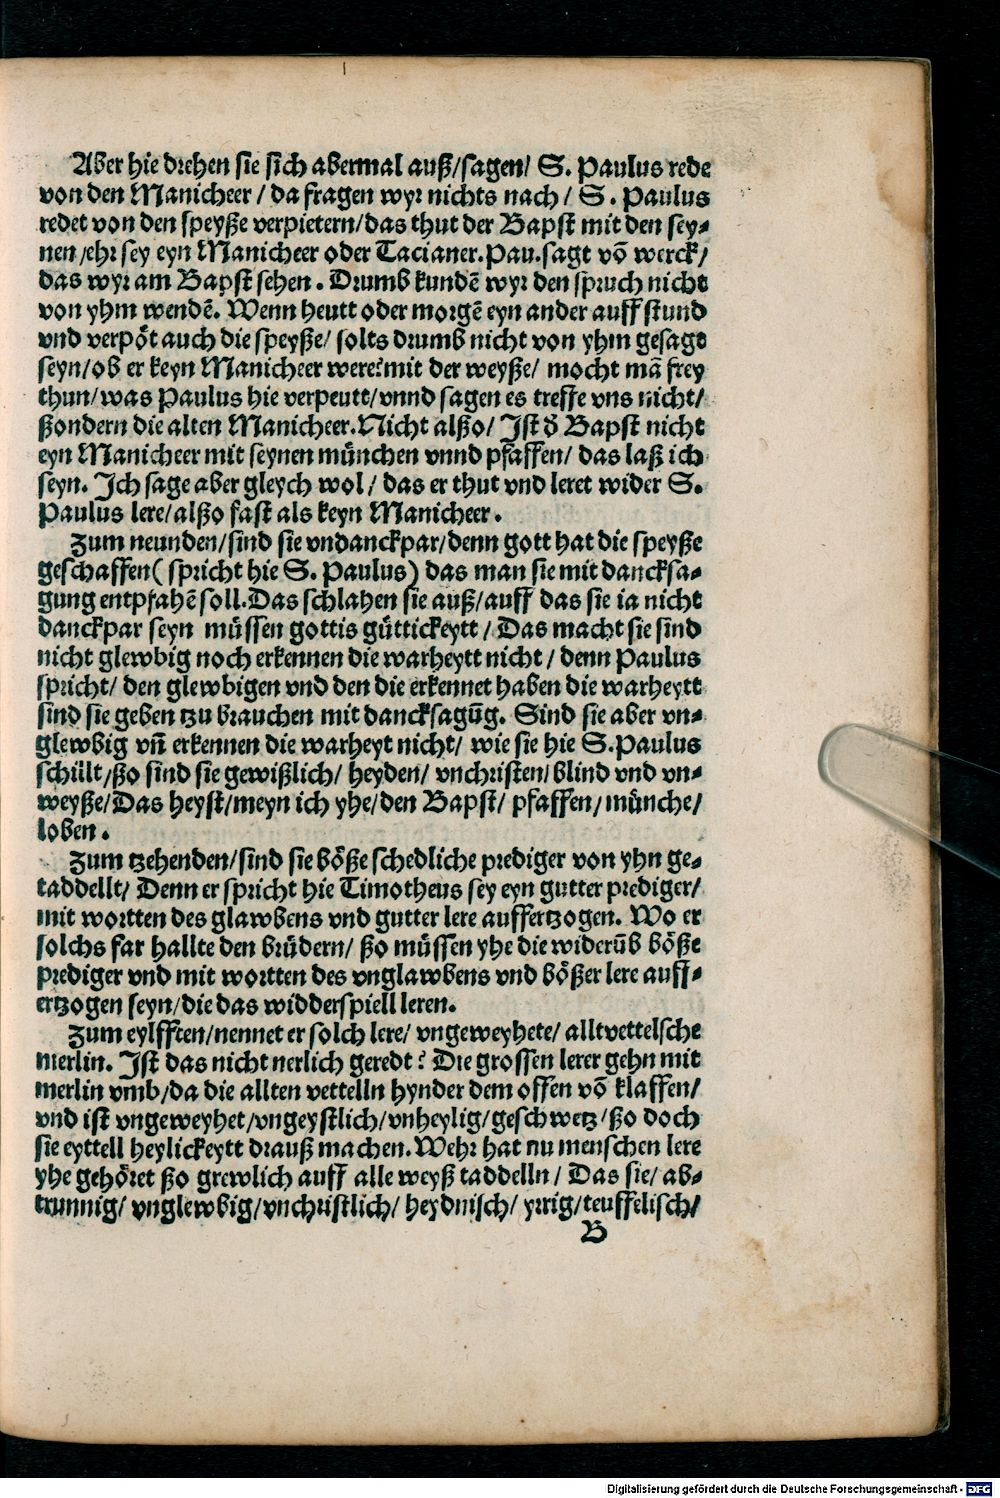 Aber hie drehen sie sich abermal auß/sagen/ S. Paulus rede
von den Manicheer / da fragen wyr nichts nach / S. Paulus
redet von den speyße verpietern/das thut der Bapst mit den sey⸗
nen /ehr sey eyn Manicheer oder Tacianer.Pau.sagt võ werck/
das wyr am Bapst sehen . Drumb kundẽ wyr den spruch nicht
von yhm wendẽ. Wenn heutt oder morgẽ eyn ander auff stund
vnd verpöt auch die speyße/ solts drumb nicht von yhm gesagt
seyn/ob er keyn Manicheer were?mit der weyße/ mocht mã frey
thun/was Paulus hie verpeutt/vnnd sagen es treffe vns nicht/
ßondern die alten Manicheer.Nicht alßo/ Ist d̉ Bapst nicht
eyn Manicheer mit seynen münchen vnnd pfaffen/ das laß ich
seyn. Ich sage aber gleych wol / das er thut vnd leret wider S.
Paulus lere/alßo fast als keyn Manicheer .
Zum neunden/sind sie vndanckpar/denn gott hat die speyße
geschaffen( spricht hie S. Paulus) das man sie mit dancksa⸗
gung entpfahẽ soll.Das schlahen sie auß/auff das sie ia nicht
danckpar seyn müssen gottis güttickeytt / Das macht sie sind
nicht glewbig noch erkennen die warheytt nicht / denn Paulus
spricht/ den glewbigen vnd den die erkennet haben die warheytt
sind sie geben tzu brauchen mit dancksagũg. Sind sie aber vn⸗
glewbig vñ erkennen die warheyt nicht/ wie sie hie S.Paulus
schült/ßo sind sie gewißlich/ heyden/ vnchristen/ blind vnd vn⸗
weyße/Das heyst/meyn ich yhe/den Bapst/ pfaffen/münche/
loben .
Zum tzehenden/sind sie böße schedliche prediger von yhn ge⸗
taddellt/ Denn er spricht hie Timotheus sey eyn gutter prediger/
mit wortten des glawbens vnd gutter lere aufferzogen. Wo er
solchs far hallte den brüdern/ ßo müssen yhe die widerũb böße
prediger vnd mit wortten des vnglawbens vnd bößer lere auff⸗
ertzogen seyn/die das widderspiell leren.
Zum eylfften/nennet er solch lere/ vngeweyhete/ alltvettelsche
merlin. Ist das nicht nerlich geredt? Die grossen lerer gehn mit
merlin vmb/da die allten vettelln hynder dem offen võ klaffen/
vnd ist vngeweyhet/vngeystlich/vnheylig/geschwetz/ßo doch
sie eyttell heylickeytt drauß machen.Wehr hat nu menschen lere
yhe gehöret ßo grewlich auff alle weyß taddelln / Das sie/ ab⸗
trunnig/ vnglewbig/vnchristlich/ heydnisch/ yrrig/teuffelisch/
B
Digitalisierung gefördert durch die Deutsche Forschungsgemeinschaft - DFG